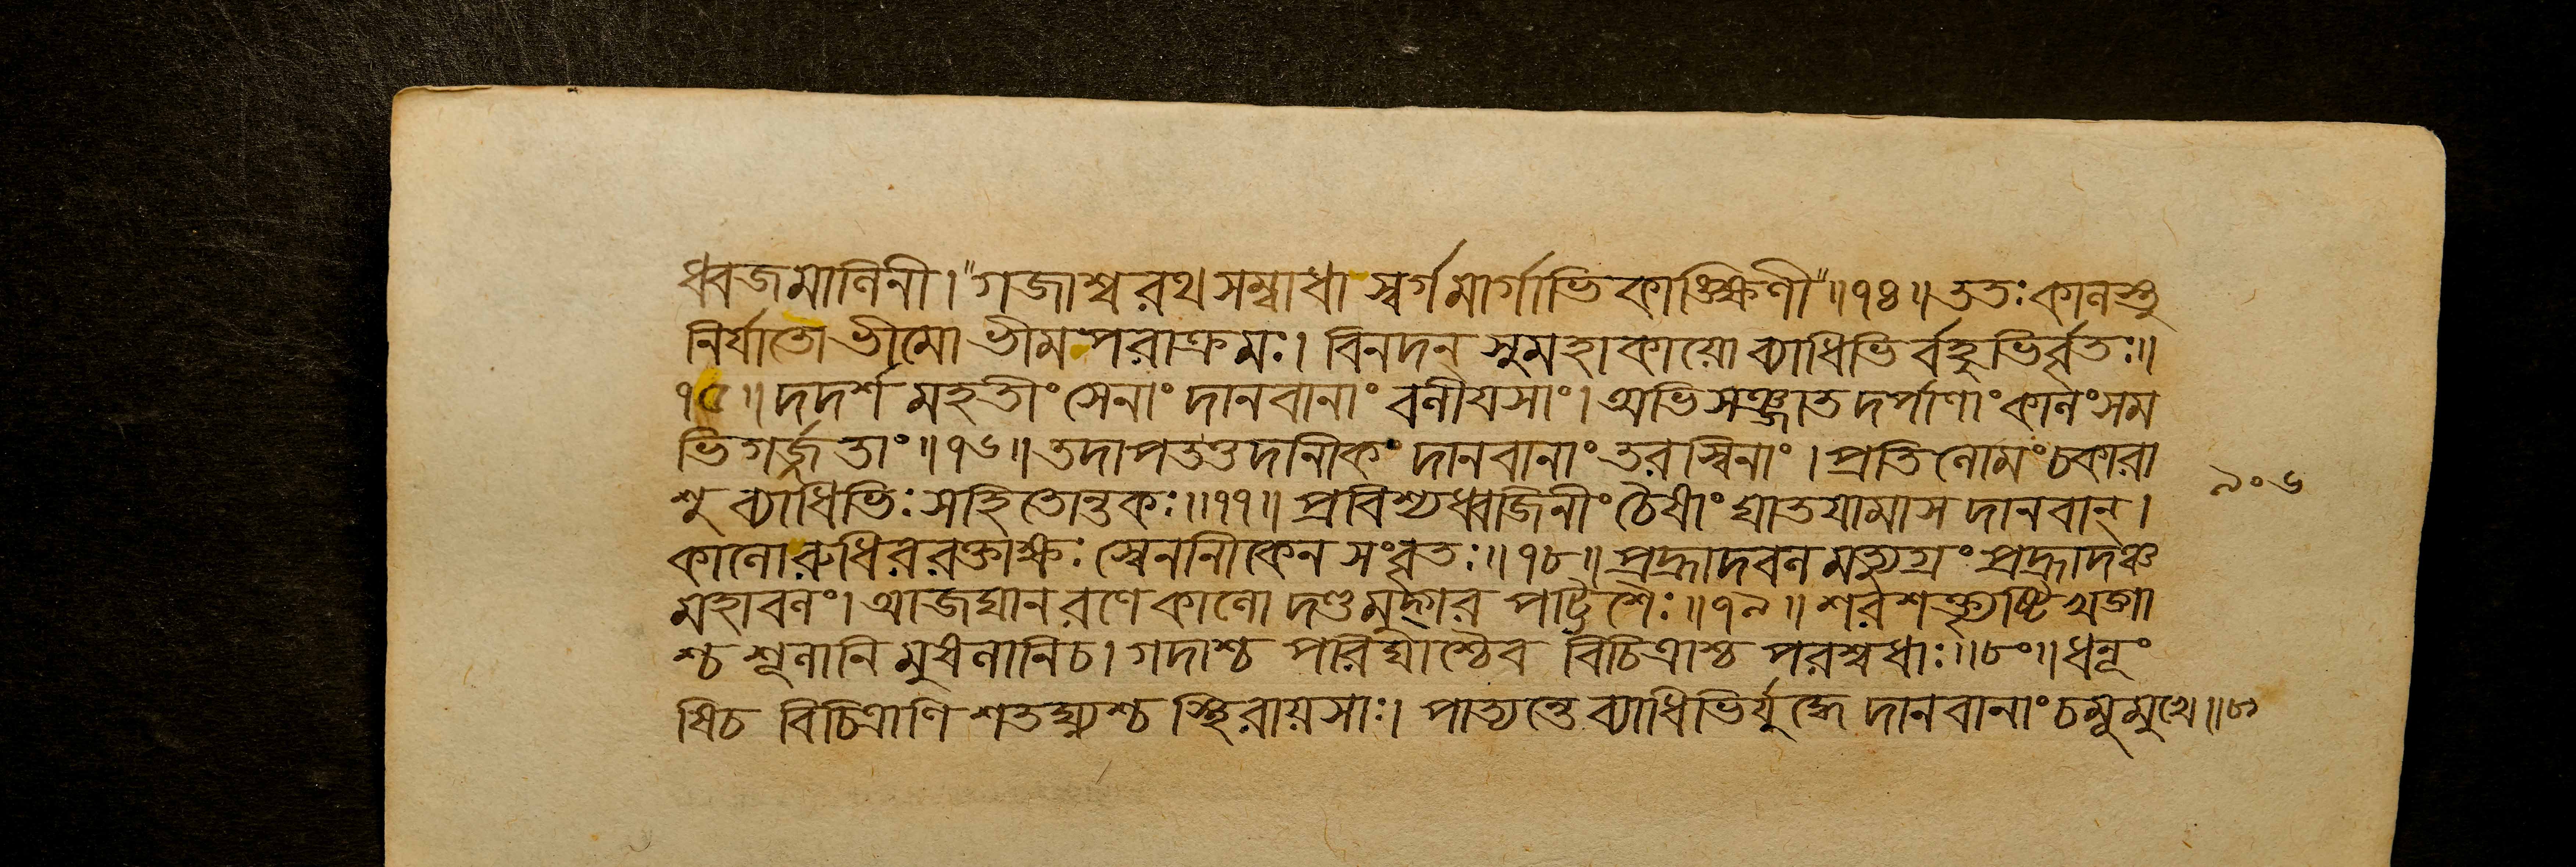 ধ্বজমালিনী। "গজাশ্বরথসম্বাধা স্বর্গমার্গাভিকাঙ্ক্ষিণী" ॥ ৭৪ ॥ ততঃ কালস্তু
নির্যাতো ভীমো ভীমপরাক্রমঃ। বিনদন্ সুমহাকায়ো ব্যাধিভির্বহুভির্বৃতঃ ॥
৭৫ ॥ দদর্শ মহতীং সেনাং দানবানাং বলীয়সাং। অভিসঞ্জাতদর্পাণাং কালং সম
ভিগর্জ্জতাং ॥ ৭৬ ॥ তদাপতত্তদানীকং দানবানাং তরস্বিনাং। প্রতিলোমং চকারা
শু ব্যাধিভিঃ সহিতোন্তকঃ ॥ ৭৭ ॥ প্রবিশ্য ধ্বজিনীং চৈষাং ঘাতয়ামাস দানবান্।
কালো রুধিররক্তাক্ষঃ স্বেনানীকেন সংবৃতঃ ॥ ৭৮ ॥ প্রহ্রাদবলমত্যুগ্রং প্রহ্রাদঞ্চ
মহাবলং। আজঘান রণে কালো দণ্ডমুদ্গর পট্টিশৈঃ ॥ ৭৯ ॥ শরশক্ত্যৃষ্টি খড়্গা
শ্চ শূলানি মুষলানি চ। গদাশ্চ পরিঘাশ্চৈব বিচিত্রাশ্চ পরশ্বধাঃ ॥ ৮০ ॥ ধনূং
ষি চ বিচিত্রাণি শতঘ্ন্যশ্চ স্থিরায়সাঃ। পাত্যন্তে ব্যাধিভির্যুদ্ধে দানবানাং চমূমুখে ॥ ৮১
৯০৬